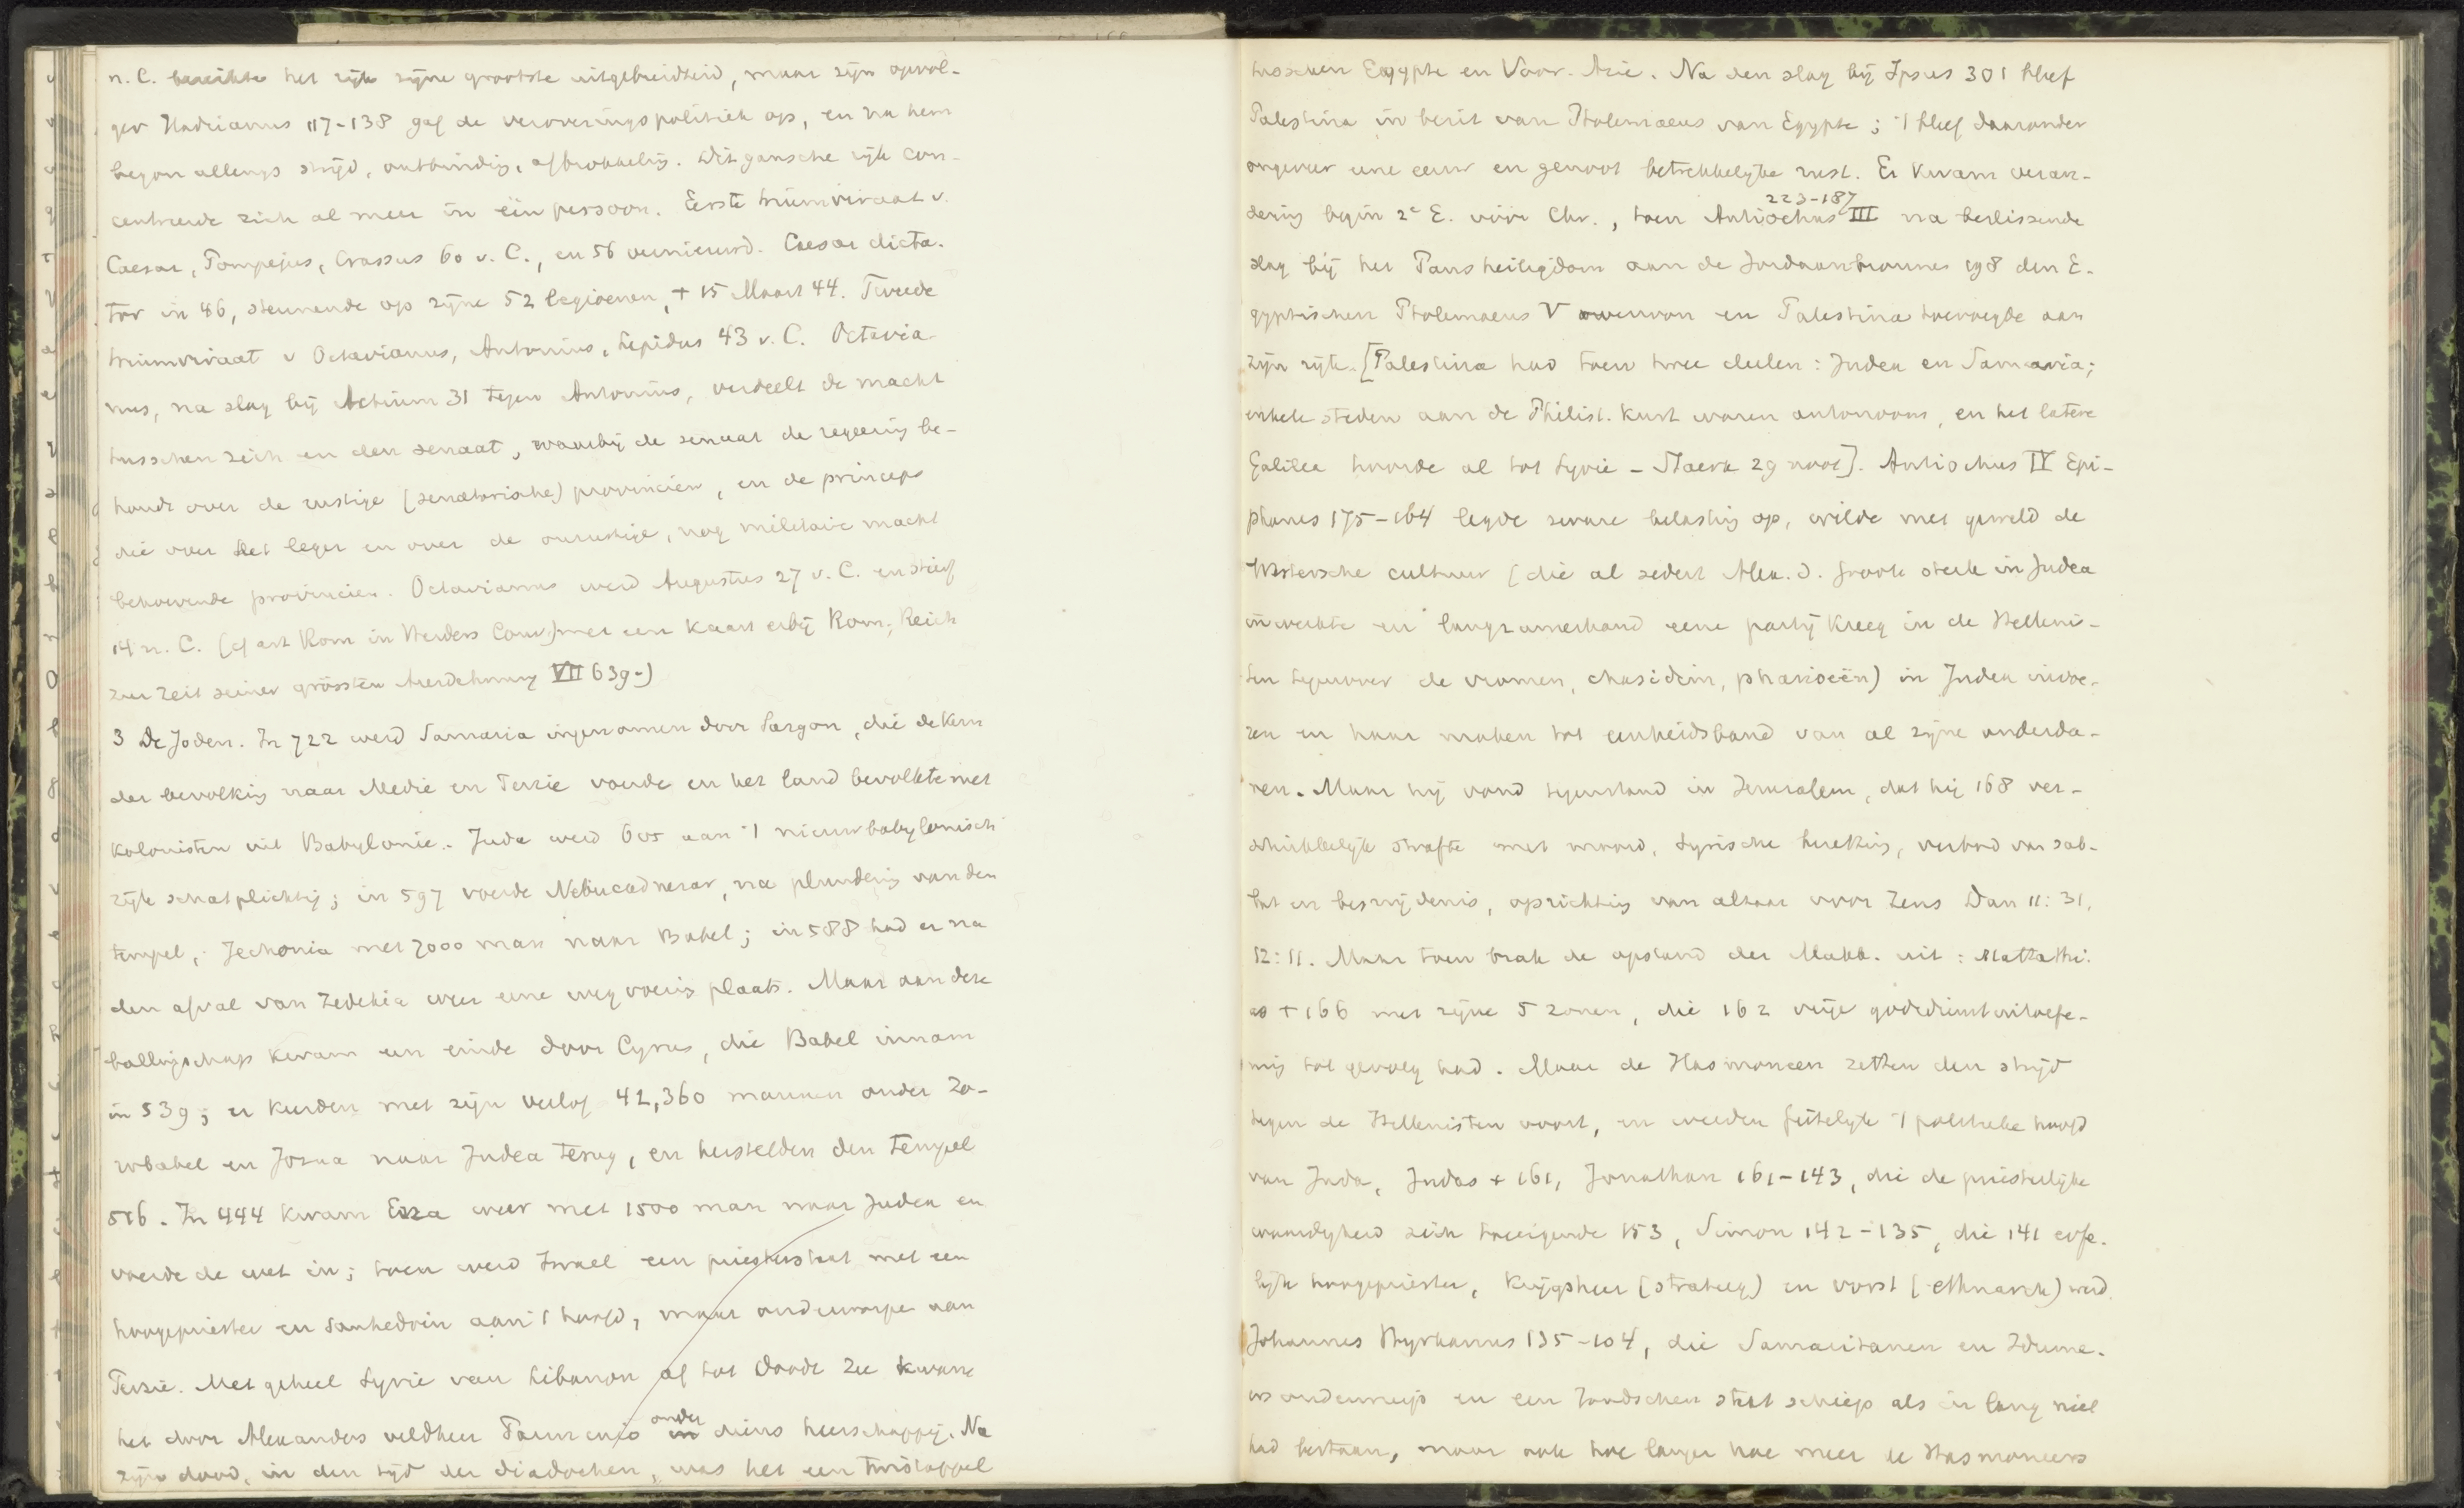 n. C. bereikte het rijk zijne grootste uitgebreidheid, maar zijn opvol-
ger Hadrianus 117-138 gaf de veroveringspolitiek op, en na hem
begon allengs strijd, ontbinding, afbrokkeling. Dit gansche rijk con-
centreerde zich al meer in één persoon. Eerste triumviraat v.
Caesar, Pompejus, Crassus 60 v. C., en 56 vernieuwd. Caesar dicta-
tor in 46, steunende op zijne 52 legioenen, † 15 Maart 44. Tweede
triumviraat v Octavianus, Antonius, Lepidus 43 v. C. Octavia-
nus, na slag bij Actium 31 tegen Antonius, verdeelt de macht
tusschen zich en den senaat, waarbij de senaat de regeering be-
houdt over de rustige (senatorische) provinciën, en de princeps
die over het leger en over de onrustige, nog militaire macht
behoevende provinciën. Octavianus werd Augustus 27 v. C. en stierf
14 n. C. (cf art Rom in Herders Conv.) met een kaart erbij Rom. Reich
zur Zeit seiner grössten Ausdehnung VII 639.)
3 De Joden. In 722 werd Samaria ingenomen door Sargon, die de kern
der bevolking naar Medie en Perzie voerde en het land bevolkte met
kolonisten uit Babylonie. Juda werd 605 aan 't nieuwbabylonisch
rijk schatplichtig; in 597 voerde Nebucadnezar, na plundering van den
tempel, Jechonia met 7000 man naar Babel; in 588 had er na
den afval van Zedekia weer eene wegvoering plaats. Maar aan deze
ballingschap kwam een einde door Cyrus, die Babel innam
in 539; er keerden met zijn verlof 42,360 mannen onder Ze-
rubabel en Jozua naar Judea terug, en herstelden den tempel
516. In 444 kwam Ezra weer met 1500 man naar Judea en
voerde de wet in; toen werd Israel een priesterstaat met een
hoogepriester en Sanhedrin aan 't hoofd, maar onderworpen aan
Perzie. Met geheel Syrie van Libanon af tot Doode Zee kwam
het door Alexanders veldheer Parmenio onder diens heerschappij. Na
zijn dood, in den tijd der diadochen, was het een twistappel
tusschen Egypte en Voor-Azie. Na den slag bij Ipsus 301 bleef
Palestina in bezit van Ptolemaeus van Egypte; 't bleef daaronder
ongeveer eene eeuw en genoot betrekkelijke rust. Er kwam veran-
dering begin 2e E. vóór Chr., toen Antiochus III 223-187 na beslissende
slag bij het Pansheiligdom aan de Jordaanbronnen 198 den E-
gyptischen Ptolemaeus V overwon en Palestina toevoegde aan
zijn rijk. [Palestina had toen twee deelen: Judea en Samaria;
enkele steden aan de Philist. kust waren autonoom, en het latere
Galilea hoorde al tot Syrie - Staerk 29 noot]. Antiochus IV Epi-
phanes 175-164 legde zware belasting op, wilde met geweld de
Westersche cultuur (die al sedert Alex. d. Groote sterk in Judea
inwerkte en langzamerhand eene partij kreeg in de Helleni-
sten tegenover de vromen, chasidim, phariseën) in Judea invoe-
ren en haar maken tot eenheidsband van al zijne onderda-
nen. Maar hij vond tegenstand in Jeruzalem, dat hij 168 ver-
schrikkelijk strafte met moord, Syrische bezetting, verbod van sab-
bat en besnijdenis, oprichting van altaar voor Zeus Dan 11:31,
12:11. Maar toen brak de opstand der Makk. uit: Mattathi-
as † 166 met zijne 5 zonen, die 162 vrije godsdienstuitoefe-
ning tot gevolg had. Maar de Hasmoneen zetten den strijd
tegen de Hellenisten voort, en werden feitelijk 't politieke hoofd
van Juda, Judas † 161, Jonathan 161-143, die de priesterlijke
waardigheid zich toeeigende 153, Simon 142-135, die 141 erfe-
lijk hoogepriester, krijgsheer (strateeg) en vorst (ethnarch) werd.
Johannes Hyrkanus 135-104, die Samaritanen en Idume-
ers onderwierp en een Joodschen staat schiep als er lang niet
had bestaan, maar ook hoe langer hoe meer de Hasmoneers